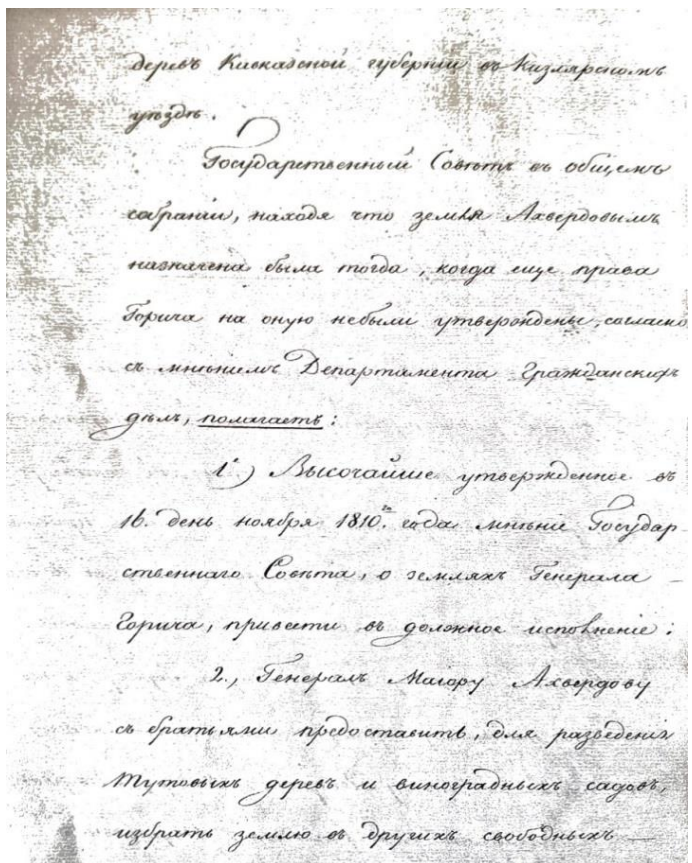 деревъ Кавказской губернiи въ Кизлярскомъ
уѣздѣ.
Государственный Совѣтъ въ общемъ
собранiи, находя что земля Ахвердовымъ
назначена была тогда, когда еще права
Горича на оную небыли утверждены, согласно
съ мнѣнiемъ Департамента Гражданскихъ
дѣлъ, полагаетъ:
1.) Высочайше утвержденное въ
16. день ноября 1810.го года мнѣнiе Государ-
ственнаго Совѣта, о земляхъ Генерала
Горича, привести въ должное исполненiе:
2., Генералъ Маiору Ахвердову
съ братьями предоставить, для разведенiя
тутовыхъ деревъ и виноградныхъ садовъ,
избрать землю въ другихъ свободныхъ